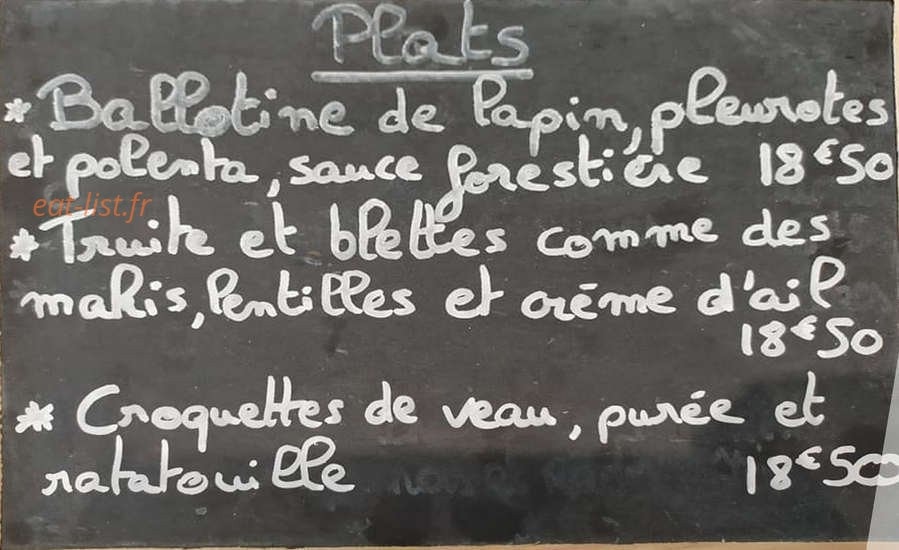 Plats
* Ballotine de lapin, pleurotes
et polenta, sauce forestière 18€50
eat-list.fr
* Truite et blettes comme des
makis, lentilles et crème d'ail
18€50
* Croquettes de veau, purée et
ratatouille 18€50